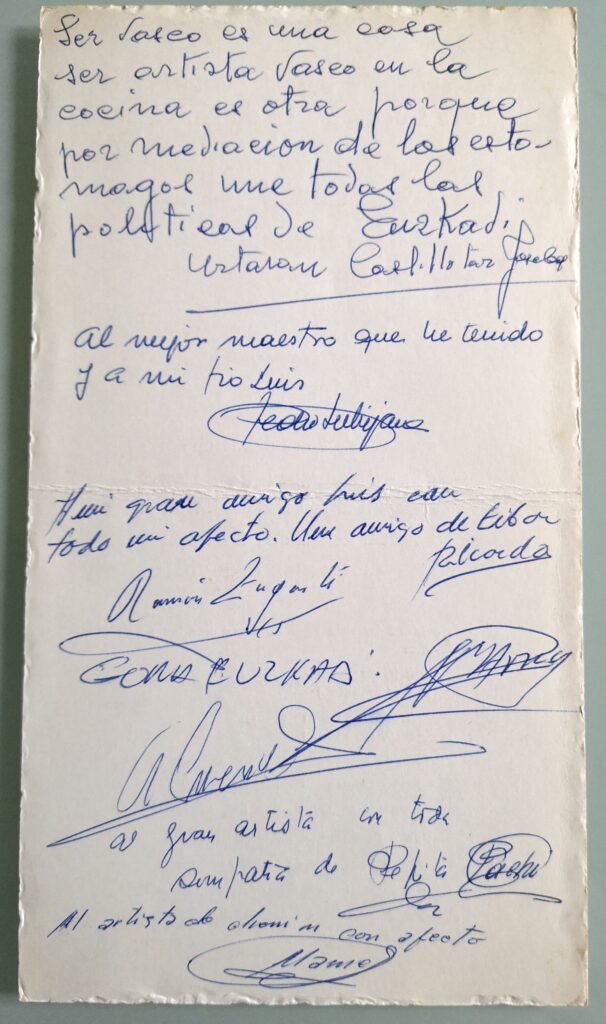 Ser Vasco es una cosa
ser artista Vasco en la
cocina es otra porque
por mediacion de los esto-
magos une todas las
politicas de Euzkadi
al mejor maestro que he tenido
y a mi tio Luis
Pedro Subijana
A mi gran amigo Luis con
todo mi afecto. Un amigo de
Ramón Zugasti
GORA EUZKADI
al gran artista con toda
simpatia de Pepita
Al artista de con afecto